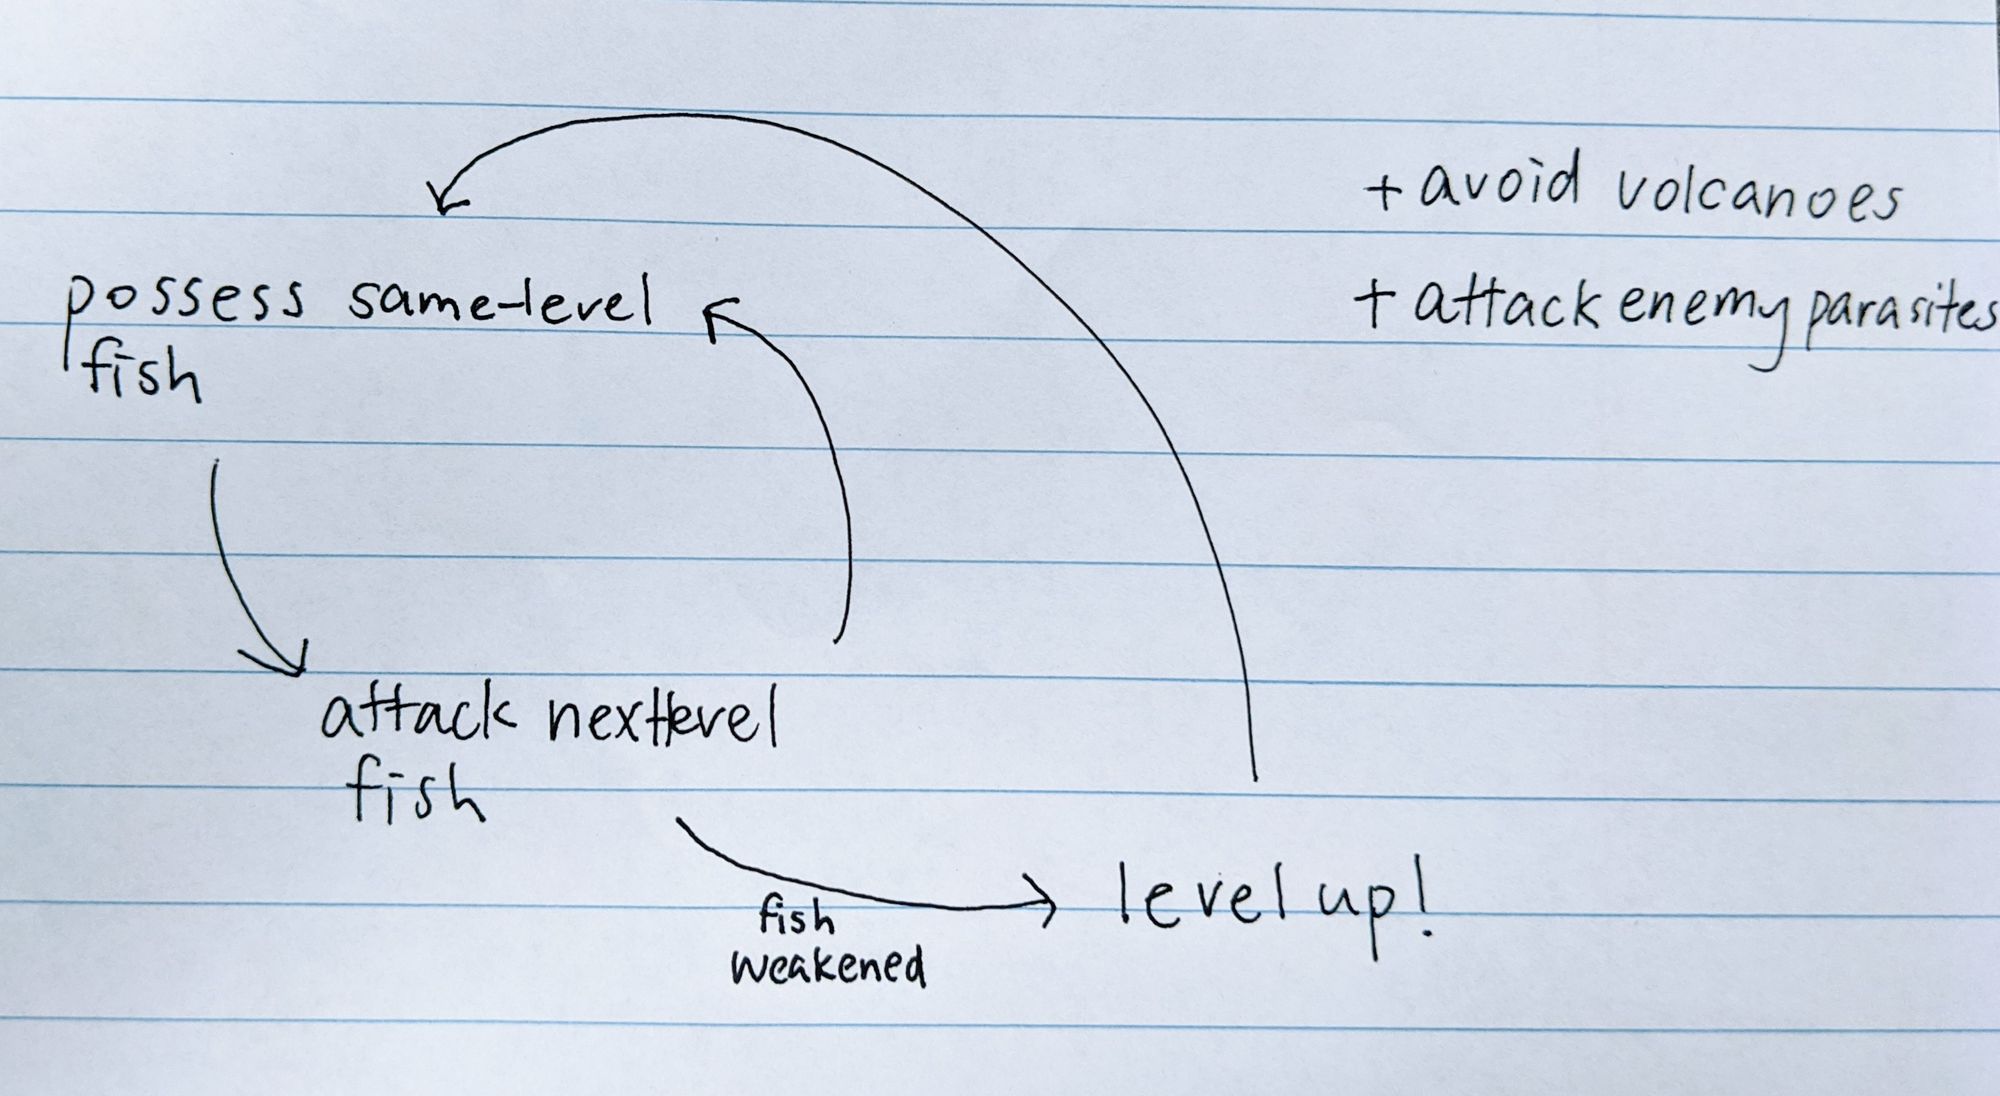 + avoid volcanoes
possess same-level
fish
+ attack enemy parasites
attack nextlevel
fish
fish
weakened
level up!